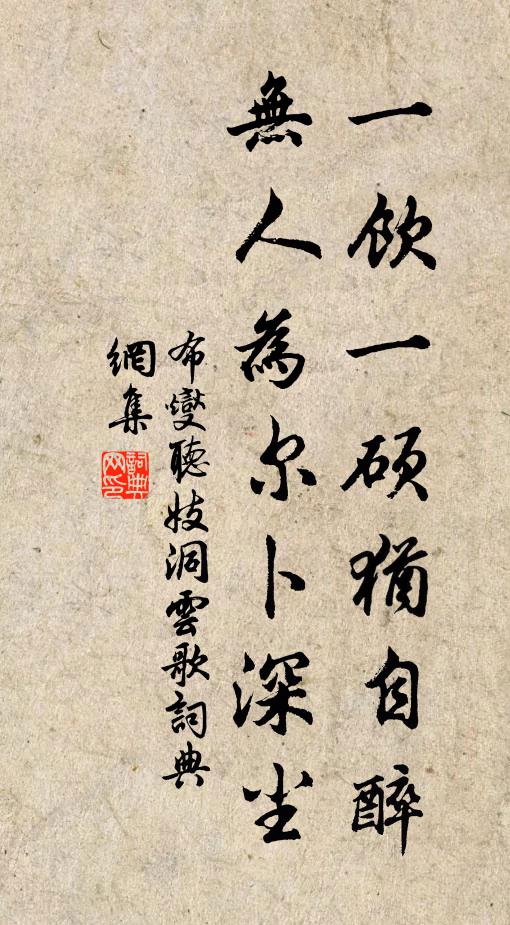 一飲一硕猶自醉
無人為尔卜深尘
布燮聽妓洞雲歌詞典
網集
詞典網印